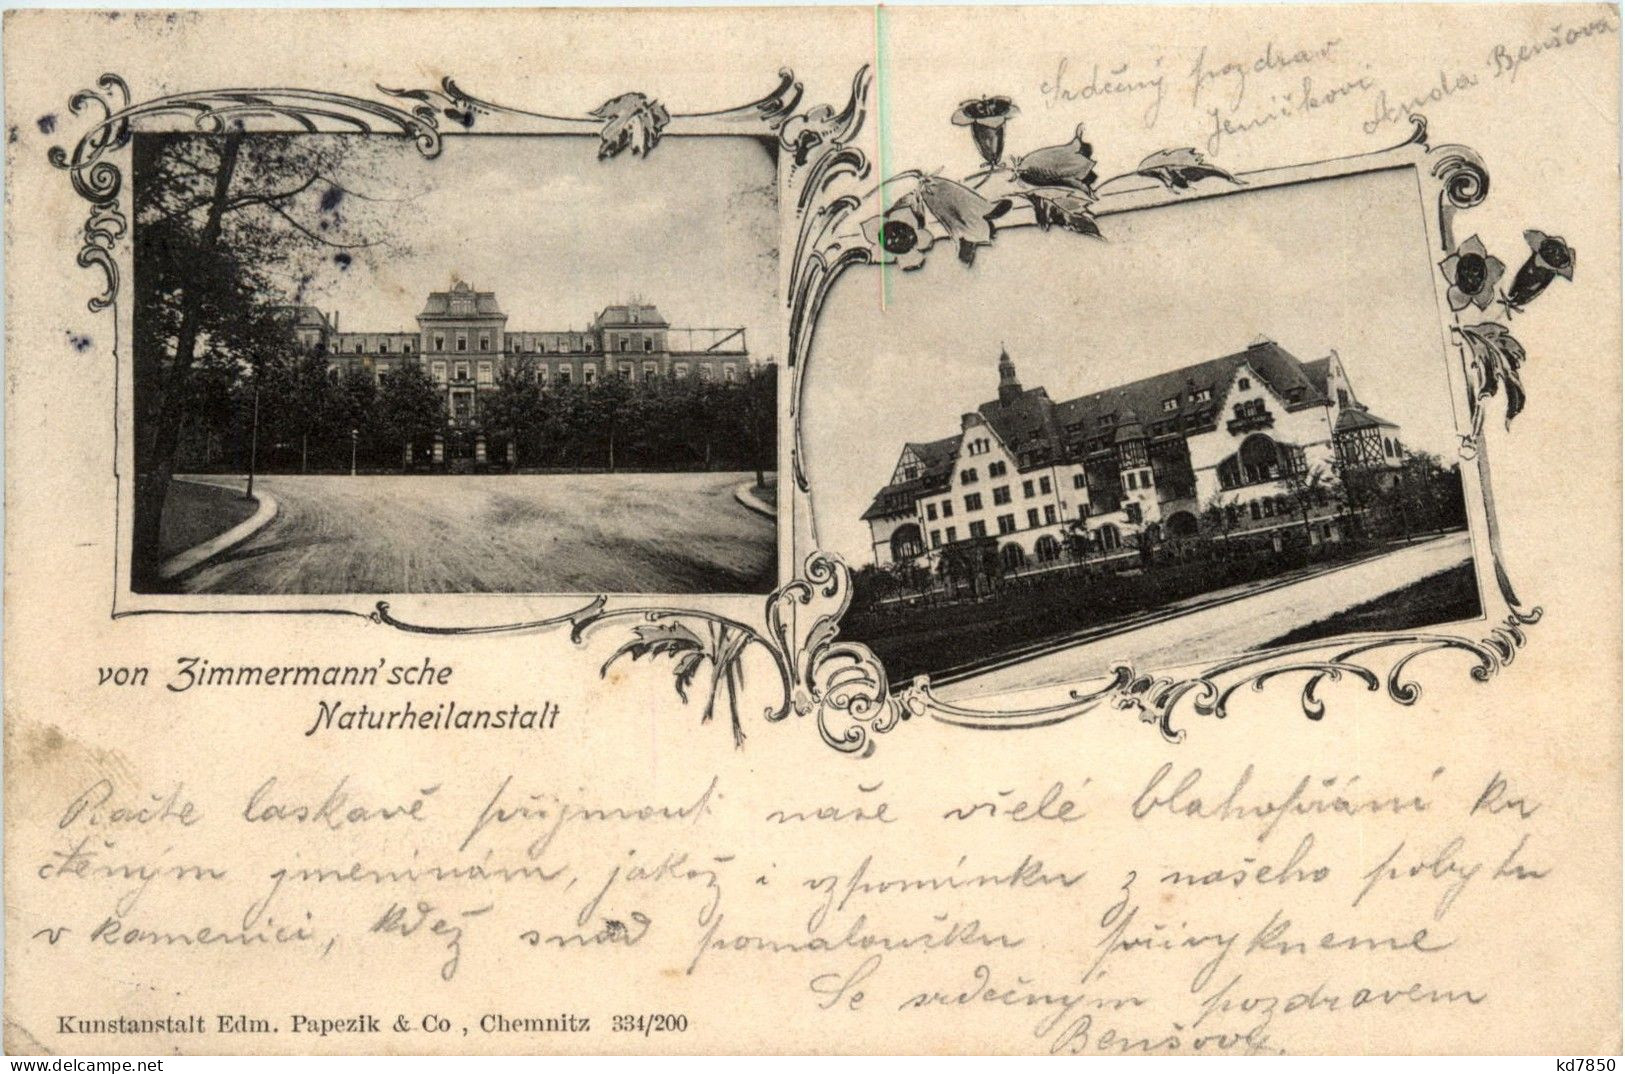 Srdečný pozdrav
Jeničkovi
Anda Benšova
von Zimmermann'sche
Naturheilanstalt
Račte laskavě přijmouti naše vřelé blahopřání ku
ctěným jmeninám, jakož i vzpomínku z našeho pobytu
v kamenici, kdež snad pomaloučku přivykneme
Se srdečným pozdravem
Benšovy.
Kunstanstalt Edm. Papezik & Co , Chemnitz 334/200
delcampe.net
kd7850